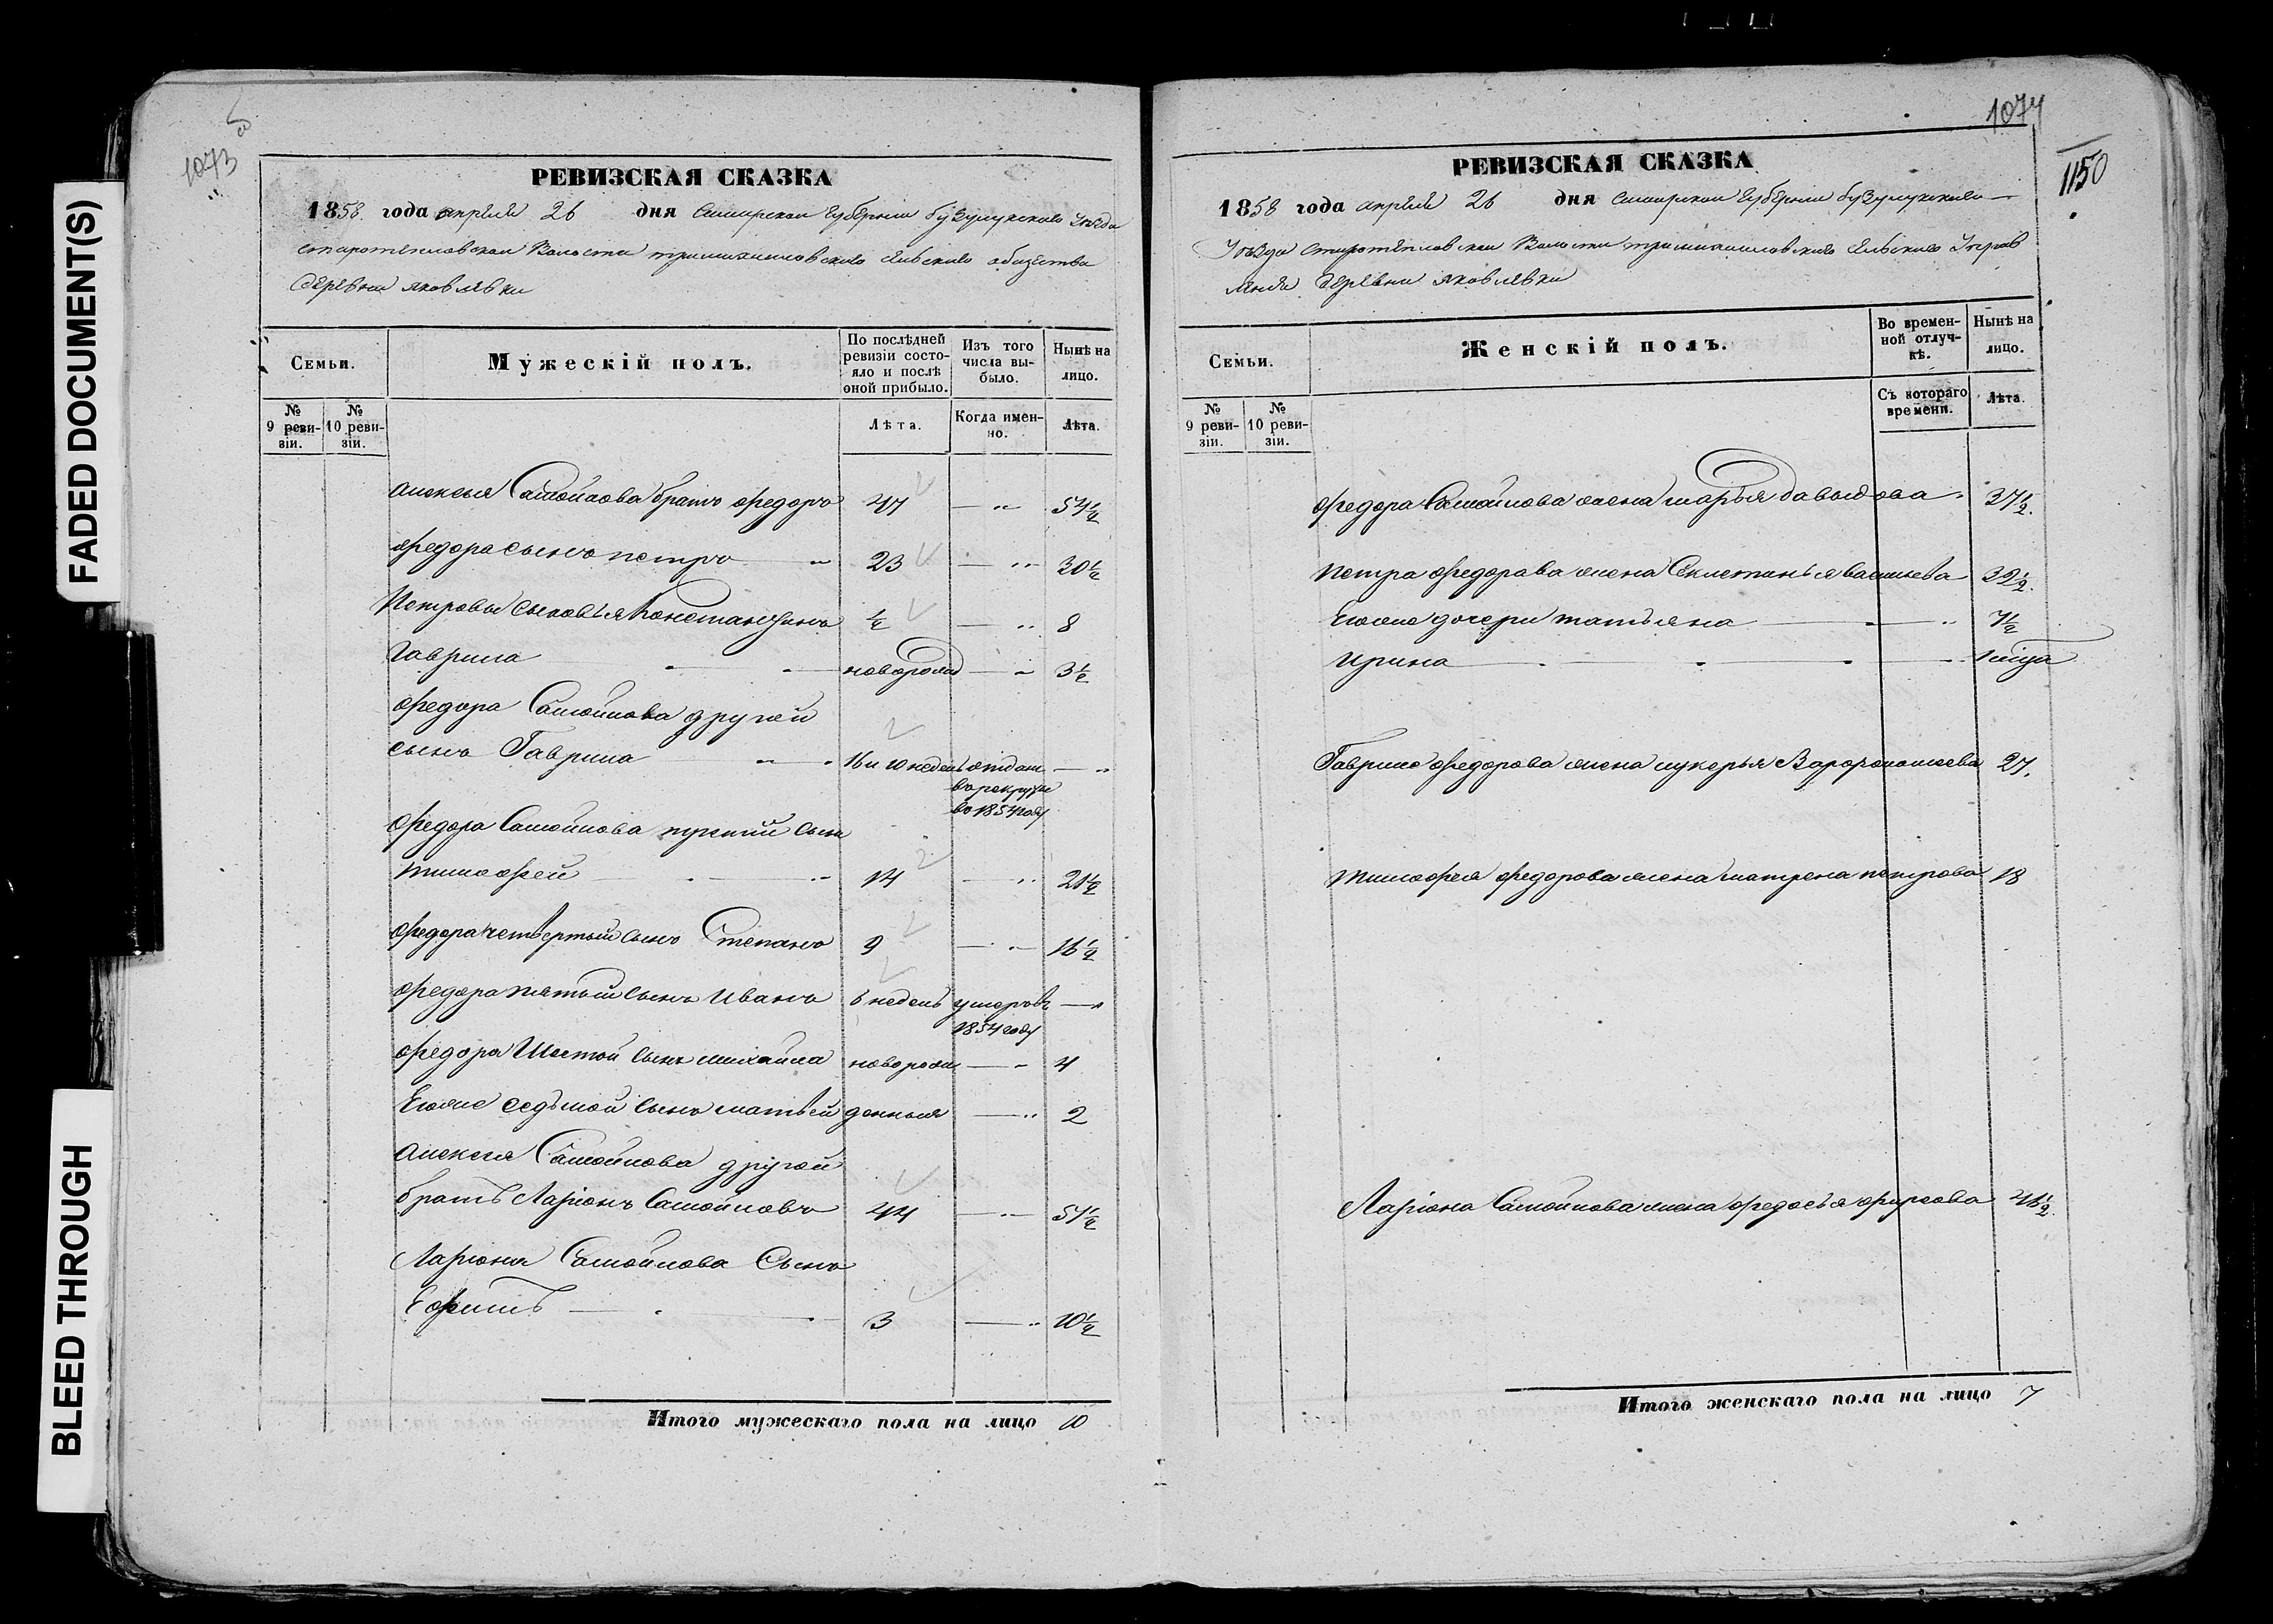 FADED DOCUMENT(S)
BLEED THROUGH
1073
РЕВИЗСКАЯ СКАЗКА
1858 года апреля 26 дня Самарской Губернии бузулукского Уезда
старотепловской Волости Сельского общества
деревни яковлевки
Семьи.
Мужескій полъ.
По послѣдней ревизіи состояло и послѣ оной прибыло.
Изъ того числа выбыло.
Нынѣ на лицо.
№ 9 ревизіи.
№ 10 ревизіи.
Лѣта.
Когда именно.
Лѣта.
алексея Самойлова братъ федоръ 47 54½
федора сынъ петръ 23 30½
Петровы сыновья Константинъ ½ 8
Гаврила новорожд 3½
федора Самойлова другой
сынъ Гаврила 16 и 10 недель отдан
в рекруты
во 1854 году
федора Самойлова третий сынъ
тимофей 14 21½
федора четвертый сынъ Степанъ 9 16½
федора пятый сынъ Иванъ 6 недель умеръ въ
1854 году
федора Шестой сынъ михайла новорож 4
Егоже седьмой сынъ матвей 2
алексея Самойлова другой
братъ Ларіонъ Самойловъ 44 51½
Ларіона Самойлова Сынъ
Ефимъ 3 10½
Итого мужескаго пола на лицо 10
1074
1150
РЕВИЗСКАЯ СКАЗКА
1858 года апреля 26 дня Самарской Губернии бузулукского
Уезда старотепловской Волости Сельского Управ
ления деревни яковлевки
Семьи.
Женскій полъ.
Во временной отлучкѣ.
Нынѣ на лицо.
№ 9 ревизіи.
№ 10 ревизіи.
Съ котораго времени.
Лѣта.
федора Самойлова жена марья давыдова 37½
Петра федорова жена Секлетинья васильева 32½
Егоже дочери татьяна 7½
ирина
Гаврилы федорова жена лукерья 27
тимофея федорова жена матрена петрова 18
Ларіона Самойлова жена федосья 46½
Итого женскаго пола на лицо 7